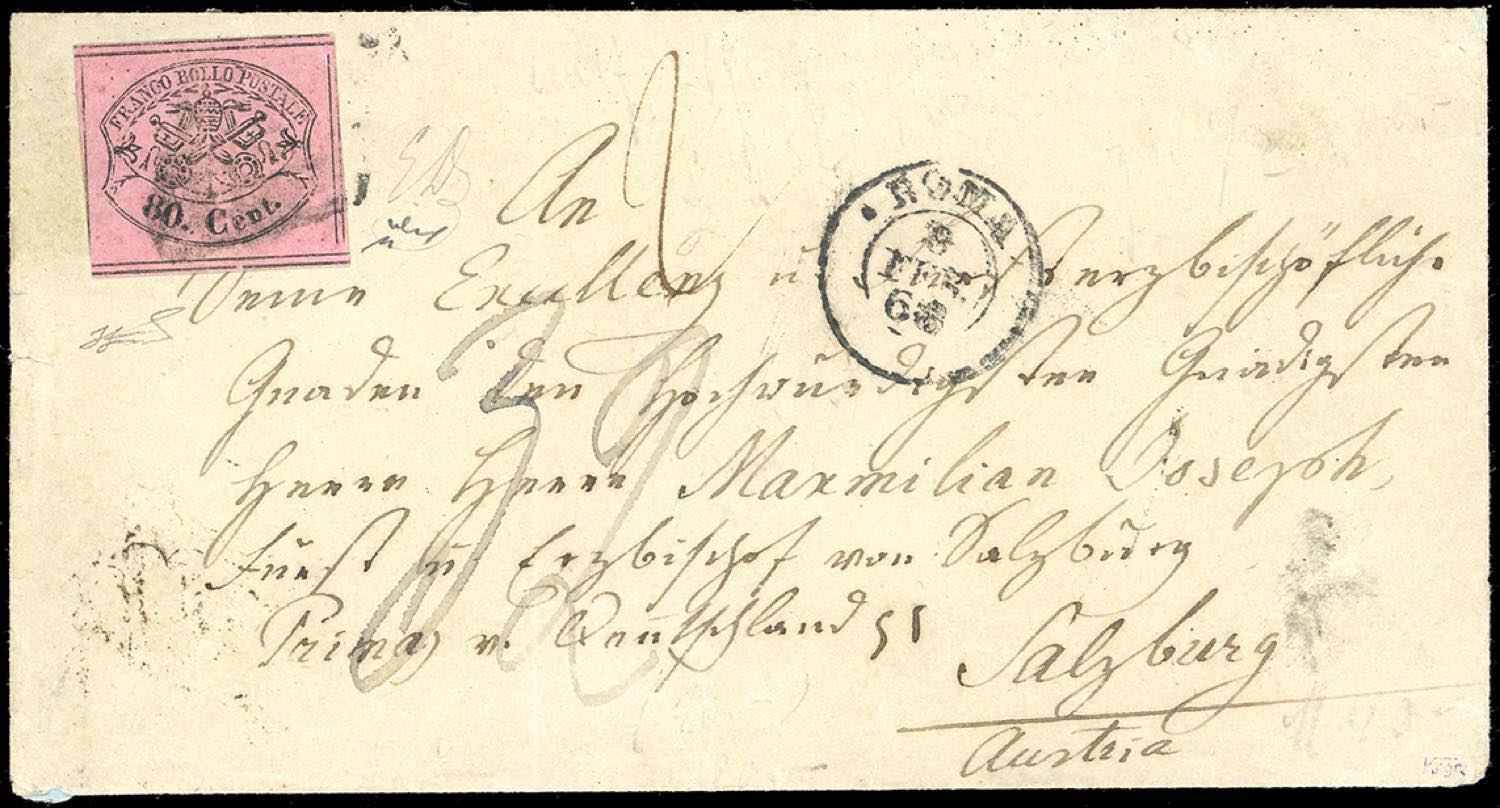 FRANCO BOLLO POSTALE
80. Cent.
ROMA
FEB
68
An
Seine Excellenz u erzbischöfliche
Gnaden den Hochwürdigsten Gnädigsten
Herrn Herrn Maxmilian Joseph,
Fürst u Erzbischof von Salzburg
Primas v. Deutschland
Salzburg
Austria